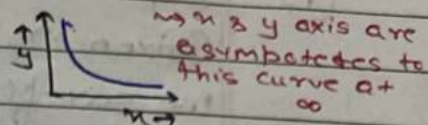 → x & y axis are
asymptotes to
this curve at
∞
↑
y
x→